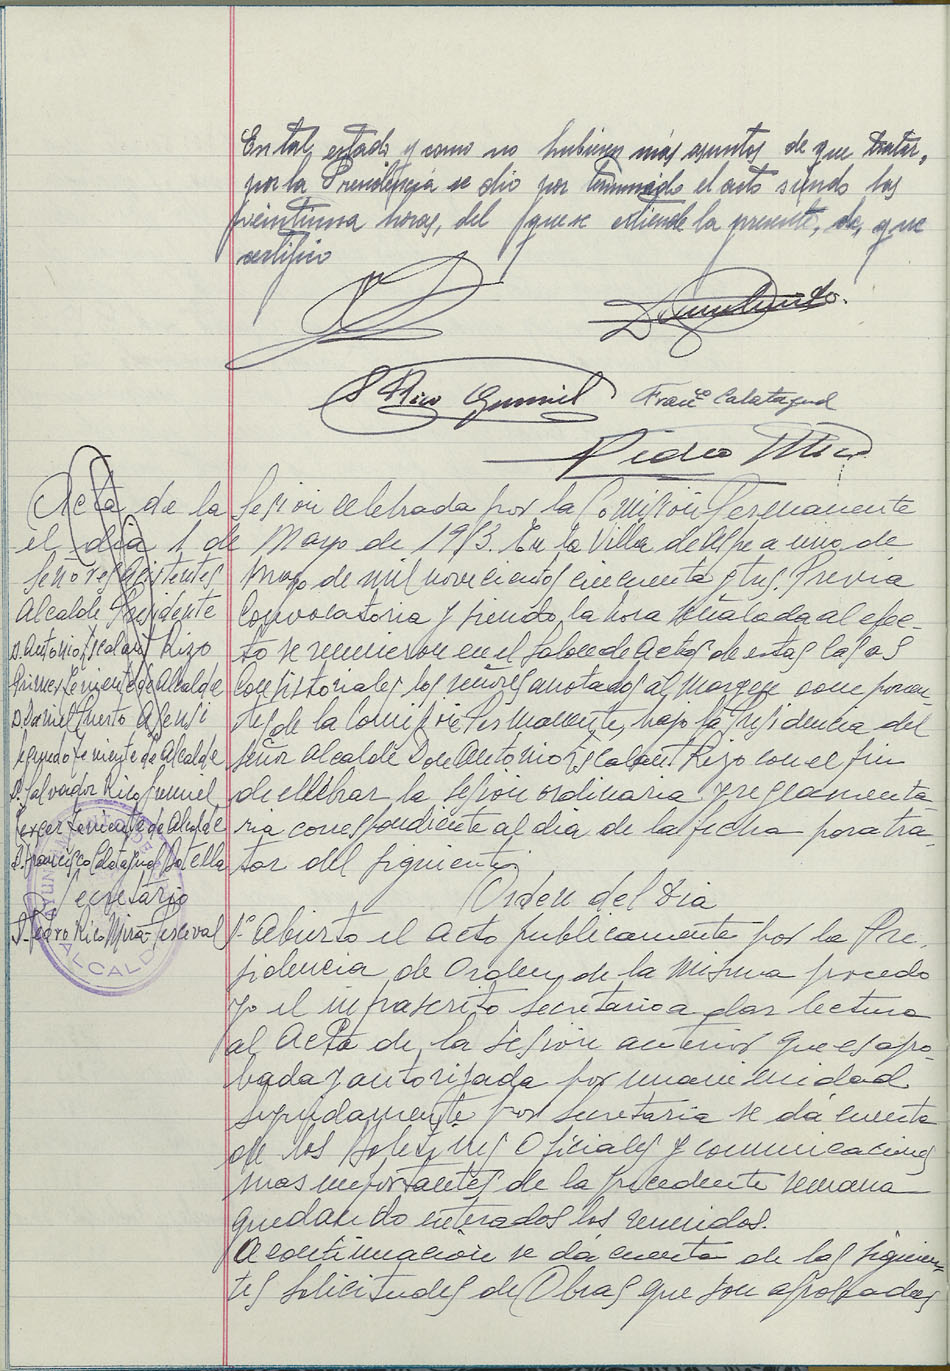 En tal estado y como no hubieron más asuntos de que tratar,
por la Presidencia se dio por terminado el acto siendo las
veintiuna horas, del que se extiende la presente, de, que
certifico
S Rico Gumiel Franco Calatayud
Pedro Rico
Acta de la Sesion celebrada por la Comisión Permanente
el día 1 de Mayo de 1953. En la Villa de Aspe a uno de
Mayo de mil novecientos cincuenta y tres. Previa
Convocatoria y siendo la hora señalada al efec-
to se reunieron en el Salon de Actos de estas Casas
Consistoriales los señores anotados al margen componen-
tes de la Comisión Permanente, bajo la Presidencia del
Señor Alcalde Don Antonio Escalant Rizo con el fin
de celebrar la sesion ordinaria y reglamenta-
ria correspondiente al dia de la fecha para tra-
tar del siguiente;
Señores asistentes
Alcalde Presidente
D. Antonio Escalant Rizo
Primer Teniente de Alcalde
D. Daniel Puerto Asensi
Segundo Teniente de Alcalde
D. Salvador Rico Gumiel
Tercer Teniente de Alcalde
D. Francisco Calatayud Botella
Secretario
D. Pedro Rico Mira-Perceval
AYUNTAMIENTO DE
ALCALD
Orden del Dia
1º Abierto el acto publicamente por la Pre-
sidencia de Orden de la misma procedo
yo el infrascrito secretario a dar lectura
al Acta de la Sesion anterior que es apro-
bada y autorizada por unanimidad
Seguidamente por secretaria se dá cuenta
de los Boletines Oficiales y comunicaciones
mas importantes de la precedente semana
quedando enterados los reunidos.
A continuación se dá cuenta de las siguien-
tes solicitudes de Obras que son aprobadas